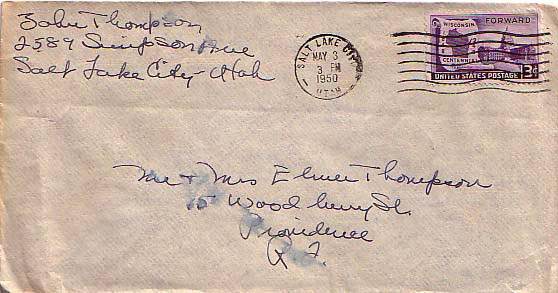 John Thompson
2589 Simpson Ave
Salt Lake City - Utah
SALT LAKE CITY
MAY 3
3 PM
1950
UTAH
WISCONSIN FORWARD
CENTENNIAL
UNITED STATES POSTAGE 3¢
Mr + Mrs Elmer Thompson
15 Woodberry St.
Providence
R I.